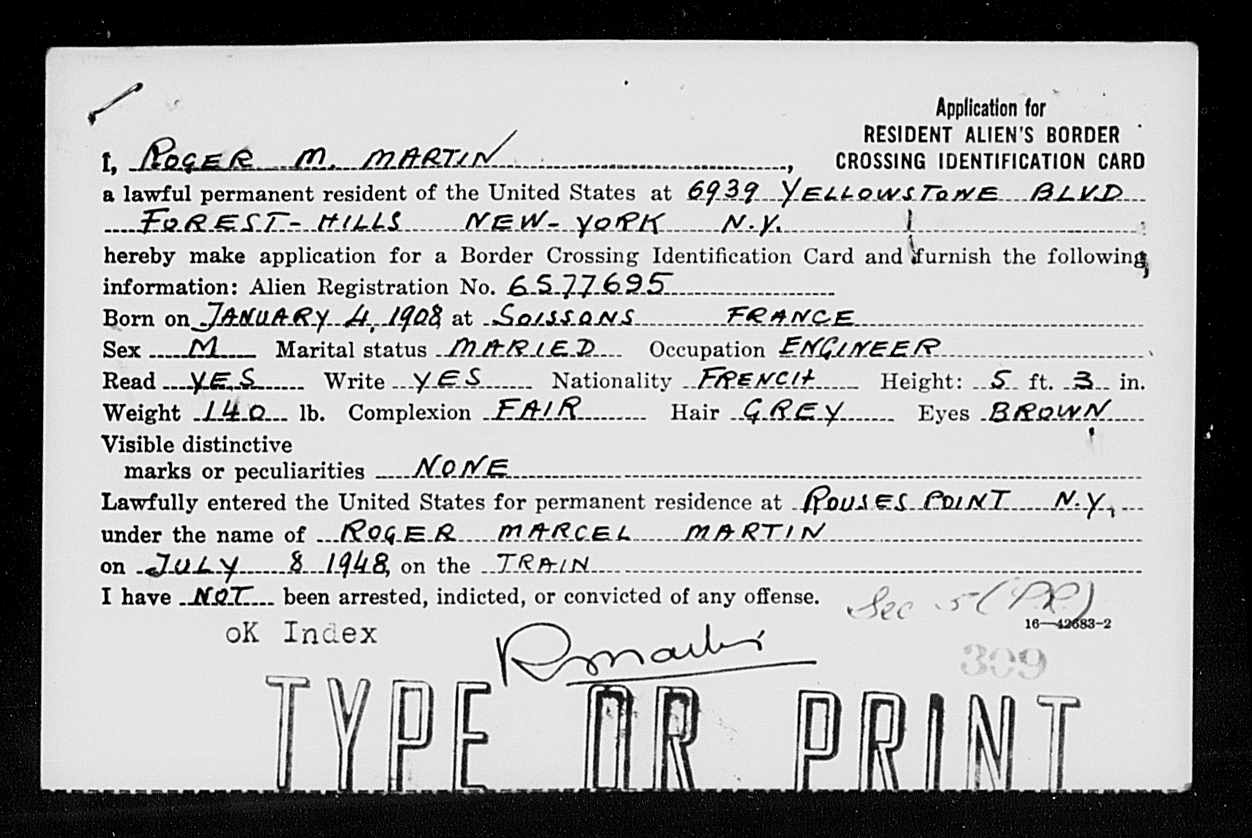 Application for
RESIDENT ALIEN'S BORDER
CROSSING IDENTIFICATION CARD
I, ROGER M. MARTIN,
a lawful permanent resident of the United States at 6939 YELLOWSTONE BLVD
FOREST-HILLS NEW-YORK N.Y.
hereby make application for a Border Crossing Identification Card and furnish the following
information: Alien Registration No. 6577695
Born on JANUARY 4, 1908, at SOISSONS FRANCE
Sex M Marital status MARIED Occupation ENGINEER
Read YES Write YES Nationality FRENCH Height: 5 ft. 3 in.
Weight 140 lb. Complexion FAIR Hair GREY Eyes BROWN
Visible distinctive
marks or peculiarities NONE
Lawfully entered the United States for permanent residence at ROUSES POINT N.Y.,
under the name of ROGER MARCEL MARTIN
on JULY 8 1948, on the TRAIN
I have NOT been arrested, indicted, or convicted of any offense.
Sec 5 (PR)
16—42683-2
oK Index
RMartin
309
TYPE OR PRINT